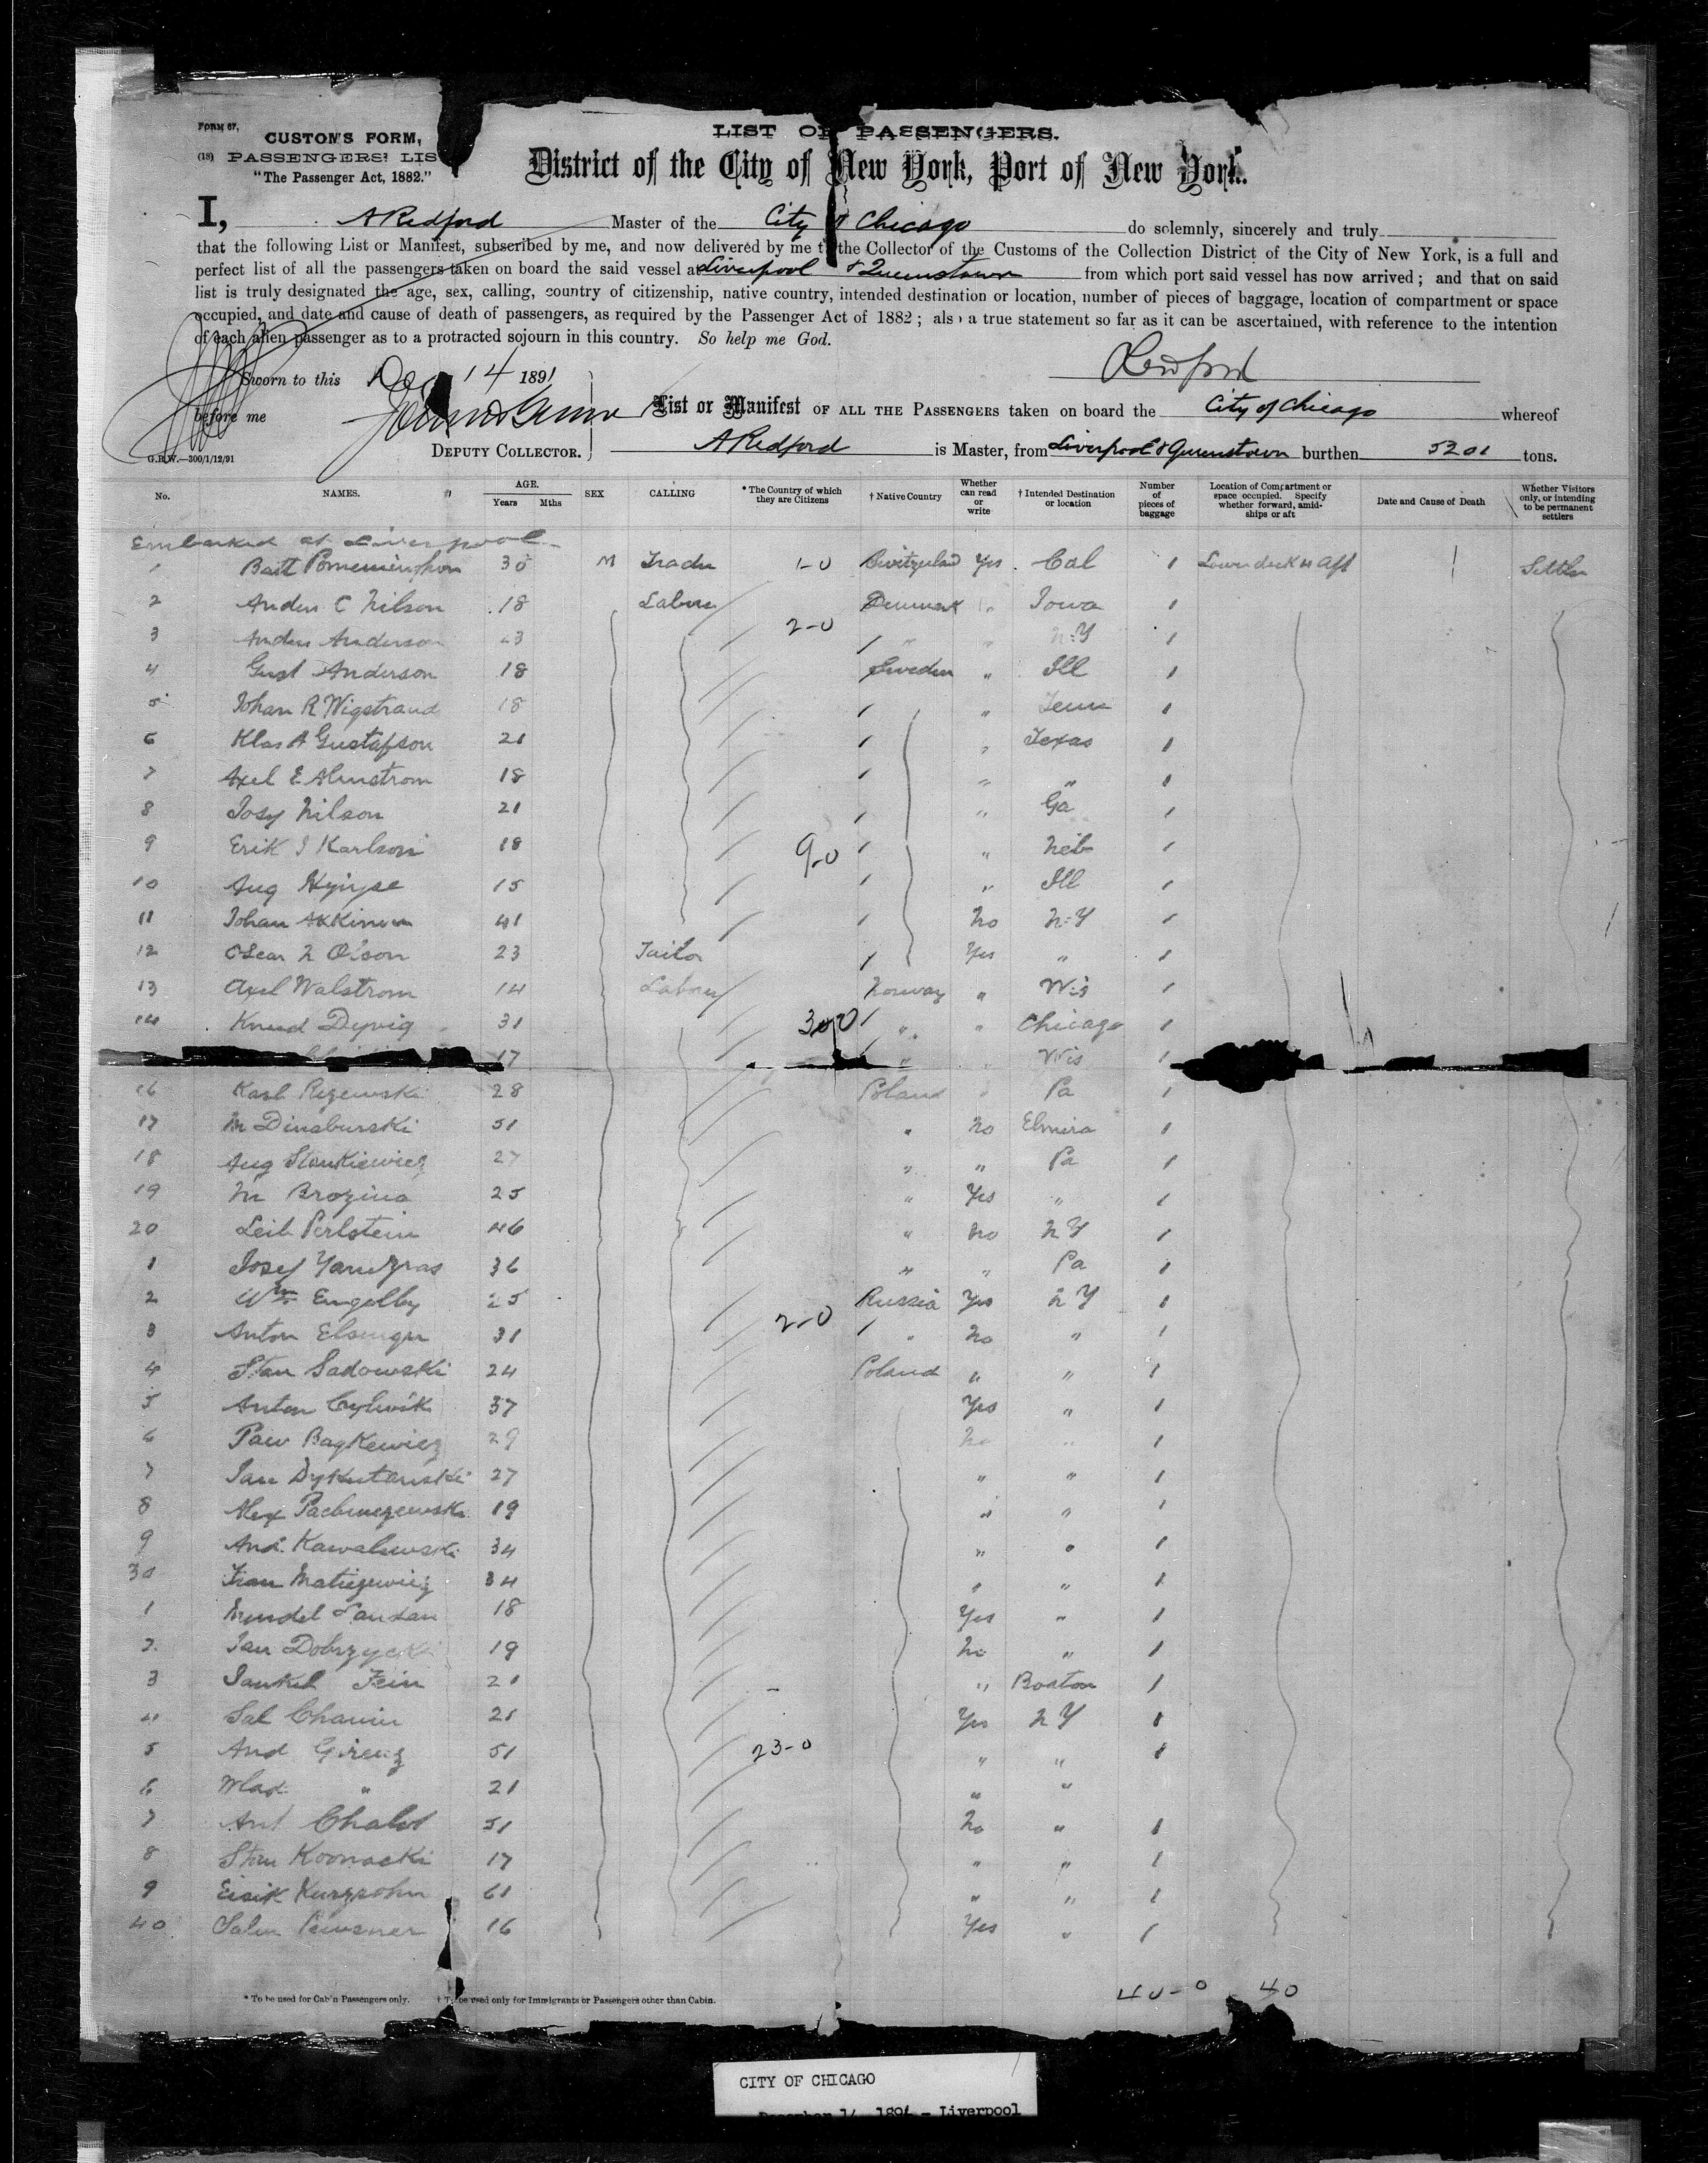 FORM 67,
CUSTOM'S FORM,
(18) PASSENGERS' LIS
"The Passenger Act, 1882."
LIST OF PASSENGERS.
District of the City of New York, Port of New York.
I, A Redford Master of the City of Chicago do solemnly, sincerely and truly
that the following List or Manifest, subscribed by me, and now delivered by me t the Collector of the Customs of the Collection District of the City of New York, is a full and
perfect list of all the passengers taken on board the said vessel at Liverpool & Queenstown from which port said vessel has now arrived; and that on said
list is truly designated the age, sex, calling, country of citizenship, native country, intended destination or location, number of pieces of baggage, location of compartment or space
occupied, and date and cause of death of passengers, as required by the Passenger Act of 1882; also a true statement so far as it can be ascertained, with reference to the intention
of each alien passenger as to a protracted sojourn in this country. So help me God.
Redford
Sworn to this Dec 14 1891
before me
List or Manifest OF ALL THE PASSENGERS taken on board the City of Chicago whereof
DEPUTY COLLECTOR. A Redford is Master, from Liverpool & Queenstown burthen 5201 tons.
G.R.W.—300/1/12/91
No. NAMES. AGE. Years Mths SEX CALLING * The Country of which they are Citizens † Native Country Whether can read or write † Intended Destination or location Number of pieces of baggage Location of Compartment or space occupied. Specify whether forward, amidships or aft Date and Cause of Death Whether Visitors only, or intending to be permanent settlers
Embarked at Liverpool
1 30 M 1-0 Switzerland Yes Cal 1 Aft Settler
2 Anders C Nilson 18 Labore Denmark " Iowa 1
2-0
3 Anders Anderson 23 " " N.Y 1
4 Gust Anderson 18 Sweden " Ill 1
5 Johan R Wigstrand 18 " Tenn 1
6 Klas A Gustafson 21 " Texas 1
7 Axel E Almstrom 18 " " 1
8 Josy Nilson 21 " Ga 1
9 Erik J Karlson 18 9-0 " Neb 1
10 Aug 15 " Ill 1
11 Johan 41 No N.Y 1
12 Oscar N Olson 23 Tailor Yes " 1
13 Axel Walstrom 14 Labore Norway " Wis 1
14 Knud Dyvig 31 3-0 " " Chicago 1
17 " Wis 1
16 Karl 28 Poland " Pa 1
17 M Dinaburski 51 " No Elmira 1
18 Aug Stankiewicz 27 " " Pa 1
19 M Brozina 25 " Yes " 1
20 Leib Perlstein 46 " No N Y 1
1 Josef 36 " " Pa 1
2 Wm Engelby 25 Russia Yes N Y 1
2-0
3 Anton 31 " No " 1
4 Stan Sadowski 24 Poland " " 1
5 Anton 37 Yes " 1
6 Paw 29 No " 1
7 Jan 27 " " 1
8 Alex 19 " " 1
9 And. Kawalewski 34 " " 1
30 34 " " 1
1 Mendel 18 Yes " 1
2 Jan Dobrzycki 19 No " 1
3 Jankel Fein 21 " Boston 1
4 Sal 21 Yes N Y 1
5 And 51 23-0 " " 1
6 Wlad " 21 " "
7 Ant 51 No " 1
8 Stan 17 " " 1
9 Eisik Kurzsohn 61 " " 1
40 16 Yes " 1
40-0 40
* To be used for Cab'n Passengers only. † To be used only for Immigrants or Passengers other than Cabin.
CITY OF CHICAGO
December 14, 1891 - Liverpool